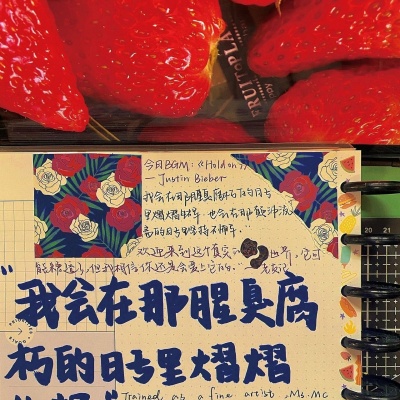 FRUITOPLA
今日BGM:《Hold on》
— Justin Bieber
我会在那腥臭腐朽的日子
里熠熠生辉,也会在那颠沛流
离的日子里坚持不懈。"
"欢迎来到这个真实的世界,它可
能糟透了,但我相信你还是会爱上它的。"
—老友记
"我会在那腥臭腐
朽的日子里熠熠
Trained as a fine artist, Ms. Mc
20 21